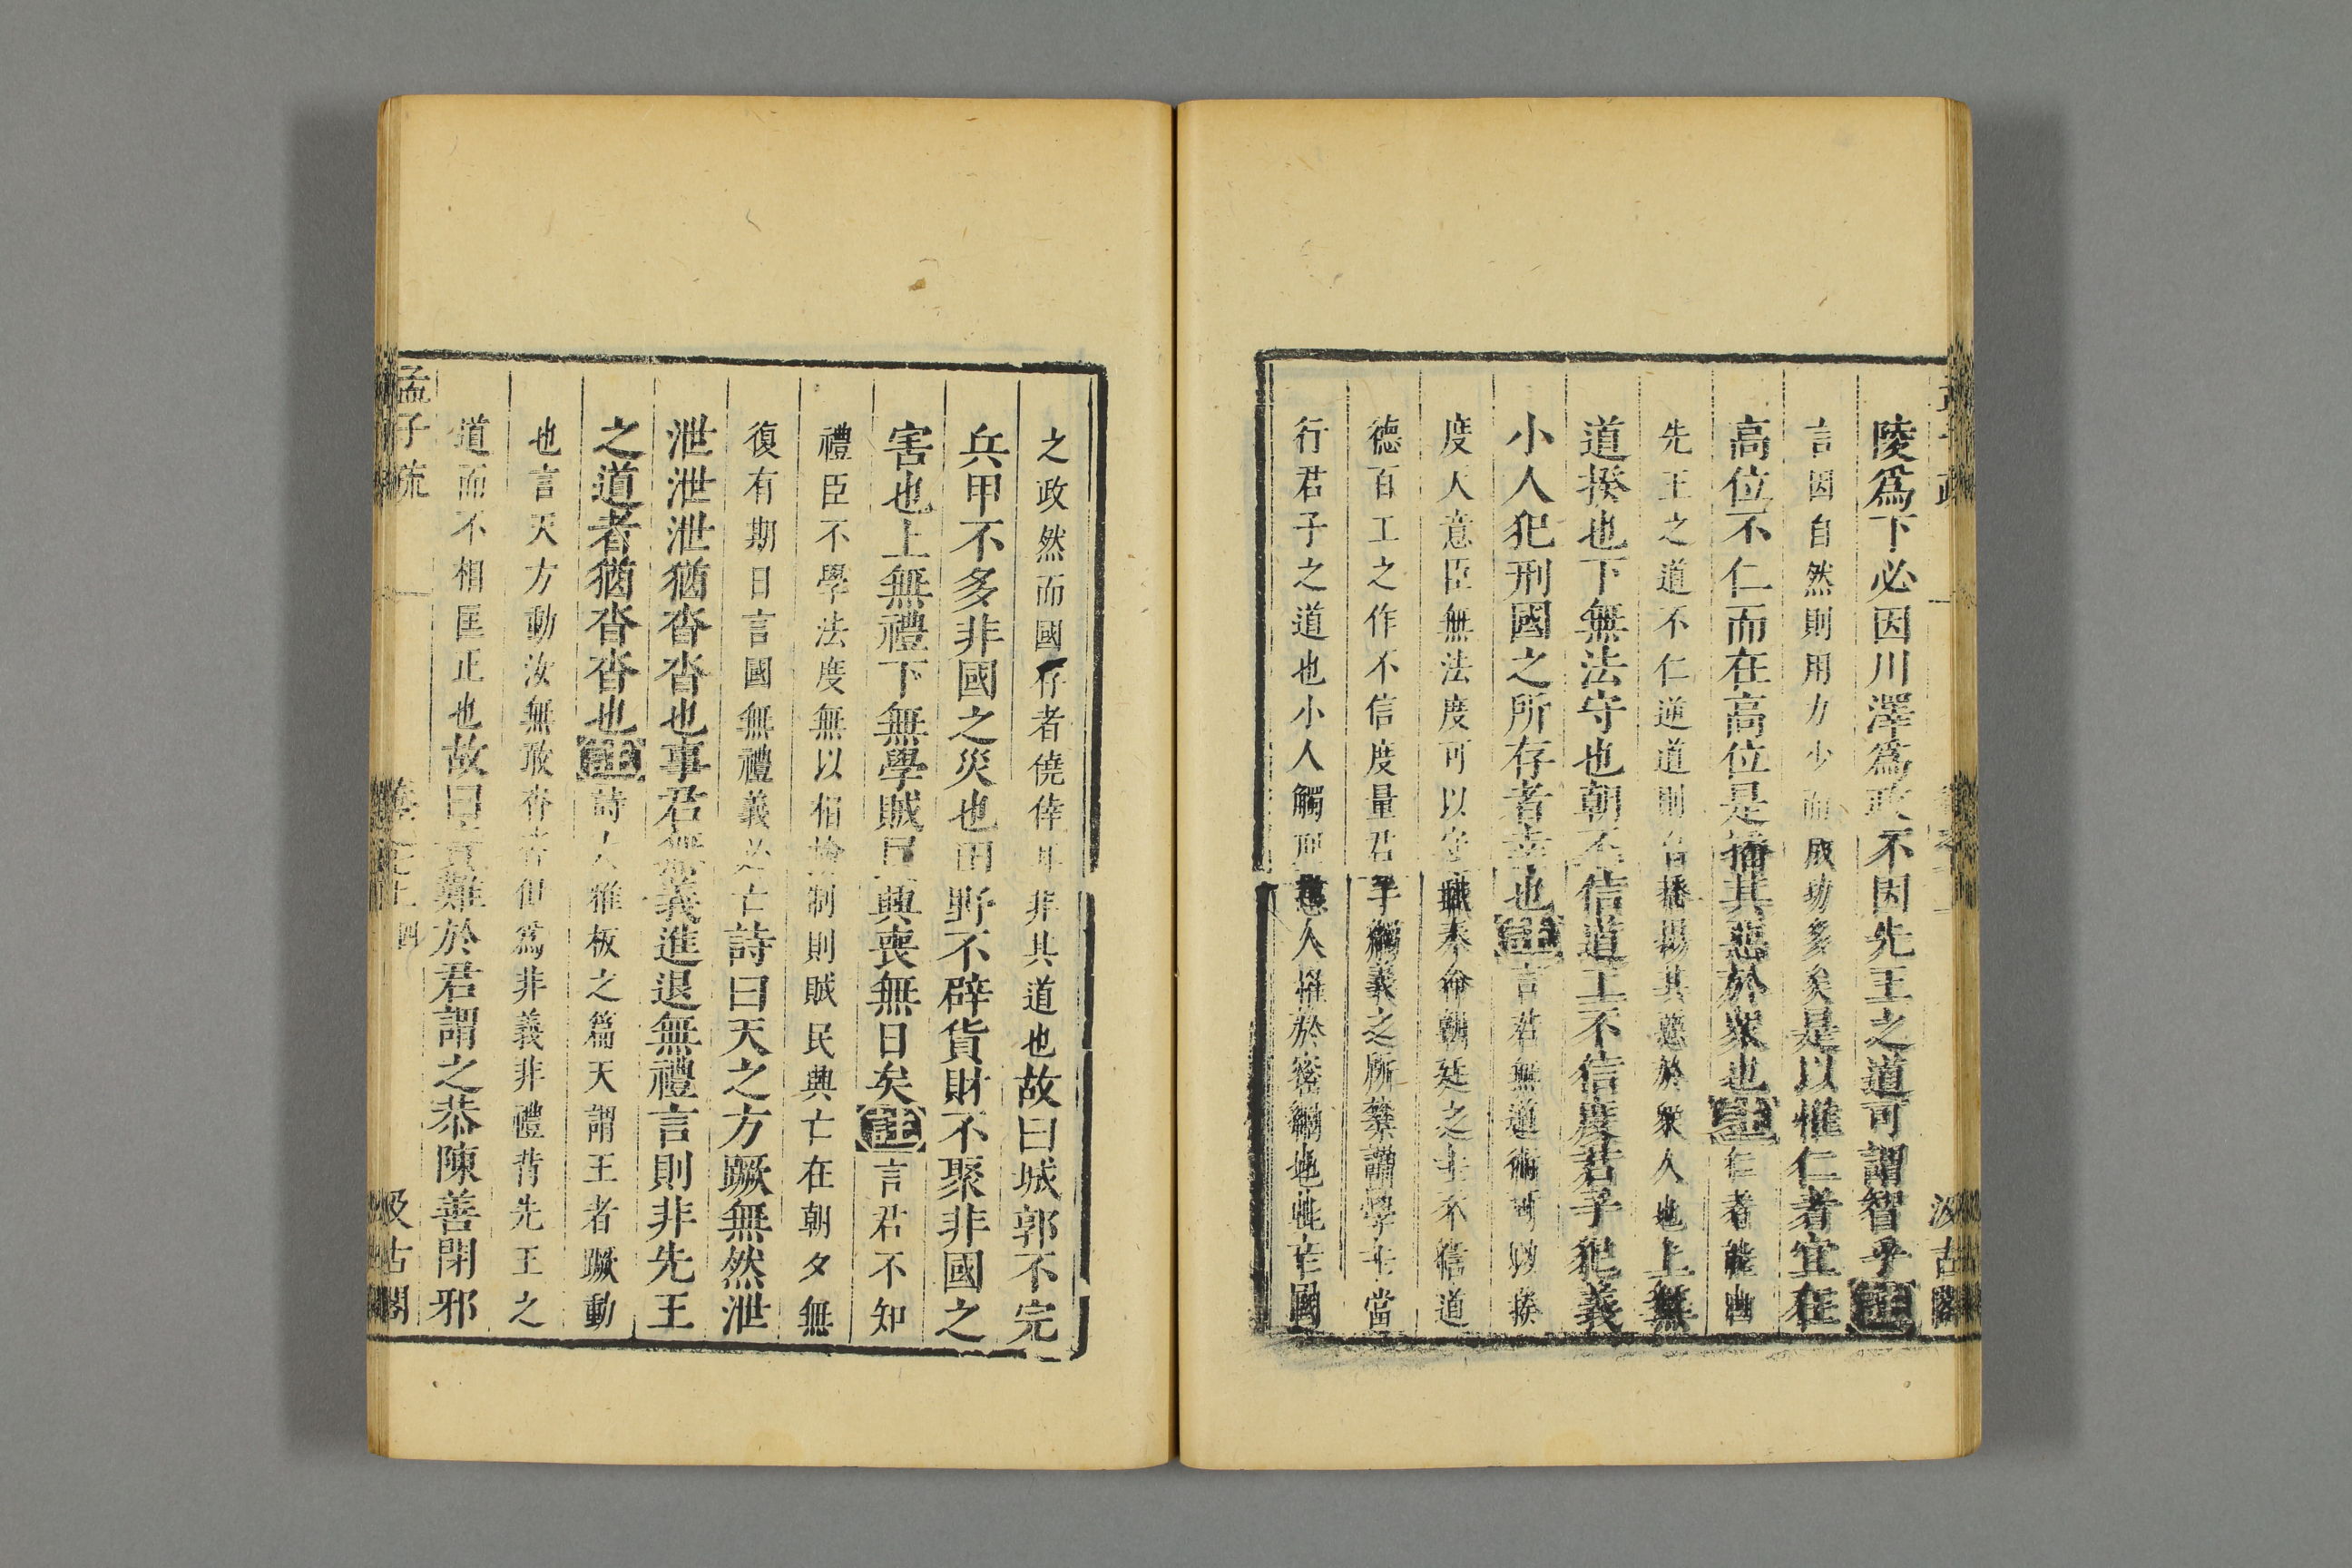 陵爲下必因川澤爲政不因先王之道可謂智乎註
言因自然則用力少而成功多矣是以惟仁者宜在
高位不仁而在高位是播其惡於衆也註仁者能由
先王之道不仁逆道則自播揚其惡於衆人也上無
道揆也下無法守也朝不信道工不信度君子犯義
小人犯刑國之所存者幸也註言君無道術可以揆
度天意臣無法度可以守職奉命朝廷之士不信道
德百工之作不信度量君子觸義之所禁謂學士當
行君子之道也小人觸刑愚人罹於密網也此亡國
孟子疏 汲古閣
之政然而國存者僥倖耳非其道也故曰城郭不完
兵甲不多非國之災也田野不辟貨財不聚非國之
害也上無禮下無學賊民興喪無日矣註言君不知
禮臣不學法度無以相檢制則賊民興亡在朝夕無
復有期日言國無禮義必亡詩曰天之方蹶無然泄
泄泄泄猶沓沓也事君無義進退無禮言則非先王
之道者猶沓沓也註詩大雅板之篇天謂王者蹶動
也言天方動汝無敢沓沓但爲非義非禮背先王之
道而不相匡正也故曰責難於君謂之恭陳善閉邪
孟子疏 卷七上 四 汲古閣